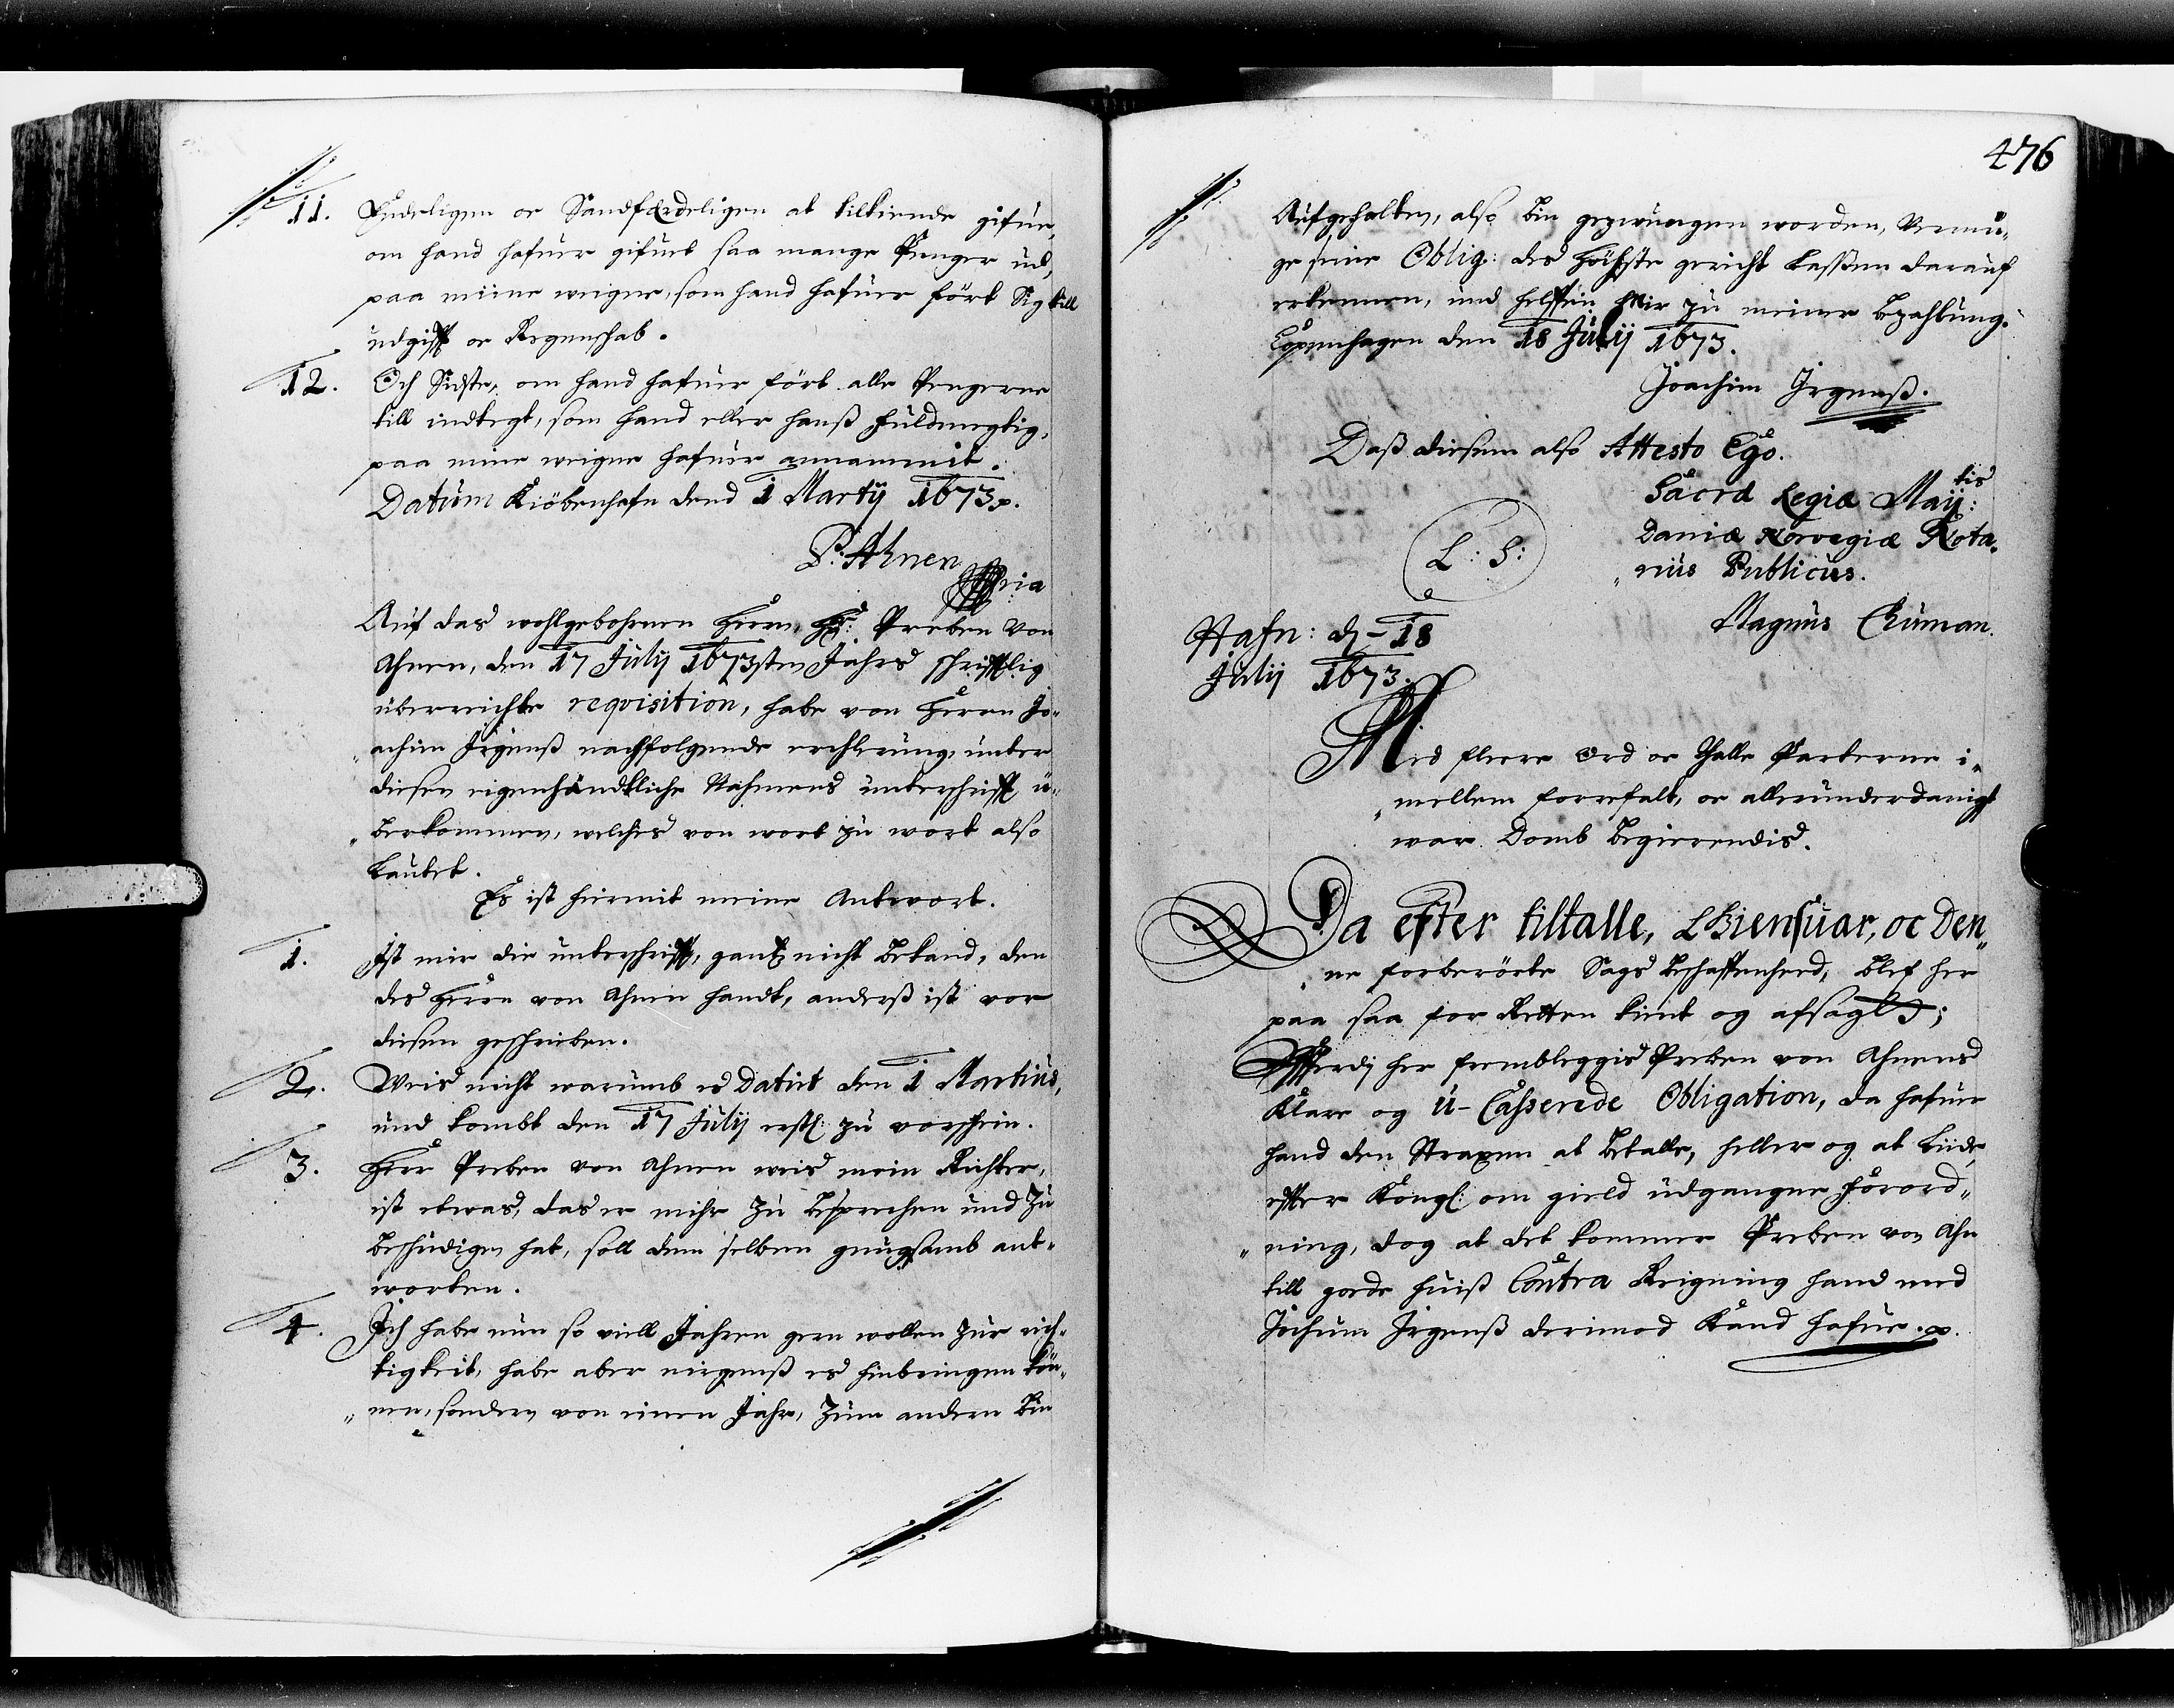 11. Endeligen oc Sandfærdeligen at tilkiende gifue,
om hand hafuer gifuet saa mange Penger ud,
paa miine weigne, som hand hafuer fört Sig till
udgifft oc Regenschab.
12. Och Sidste, om hand hafuer fört alle Pengerne
till indtegt, som hand eller hanß fuldmegtig,
paa mine weigne hafuer annammit.
Datum Kiöbenhafn dend 1 Martij 1673.
P. Ahnen
Auf das wohlgebohrnen Herrn, Hr: Preben von
Ahnen, den 17 Julij 1673sten Jahrs schrifftlig
überreichte reqvisition, habe von Herrn Jo„
„achim Irgenß nachfolgende erchlerung, unter
diesen eigenhändtliche Nahmens unterschrifft ü„
„berkommen, welches von wort zu wort also
lautet.
Es ist hiermit meine Antwort.
1. Ist mir die unterschrifft, gantz nicht bekand, den
des Herrn von Ahnen handt, anderß ist vor
diesem geschrieben.
2. Weis nicht warumb es Datirt den 1 Martius,
und kombt den 17 Julij erstl: zu vorschein.
3. Herr Preben von Ahnen weis mein Richter,
ist etwas, das er mihr zu besprechen und zu
beschudigen hat, soll dem selben gnugsamb ant„
worten.
4. Ich habe nun so viell Jahren gern wollen zur rich„
tigkeit, habe aber nirgenß es hinbringen kön„
„nen, sondern von einen Jahr, zum andern bin
476
Aufgehalten, also bin gezwungen worden, Vermü„
ge seine Oblig: des Höchste gericht lassen darauf
erkennen, und helffen Mir zu meiner bezahlung.
Copenhagen den 18 Julij 1673.
Joachim Irgenß.
Daß diesem also Attesto Ego.
Sacræ Regiæ Maij:tis
Daniæ Norvegiæ Nota„
„rius Publicus.
L: S:
Magnus Chuman.
Hafn: d. 18
Julij 1673.
Med fleere ord oc Thalle Parterne i„
„mellem forrefalt, oc allerunderdanigst
war Domb begierendis.
Da efter tilltalle, Giensuar, oc Den„
„ne forberörte Sags beschaffenheed, blef her
paa saa for Retten kient og afsagt;
Efterdj her frembleggis Preben von Ahnens
Klare og u-Casserede Obligation, da hafuer
hand den Straxen at betalle, heller og at liide
effter Kongl: om gield udgangne forord„
„ning, dog at det kommer Preben von Ahn
till gode huiß Contra Reigning hand med
Jochum Irgenß derimod kand hafue.